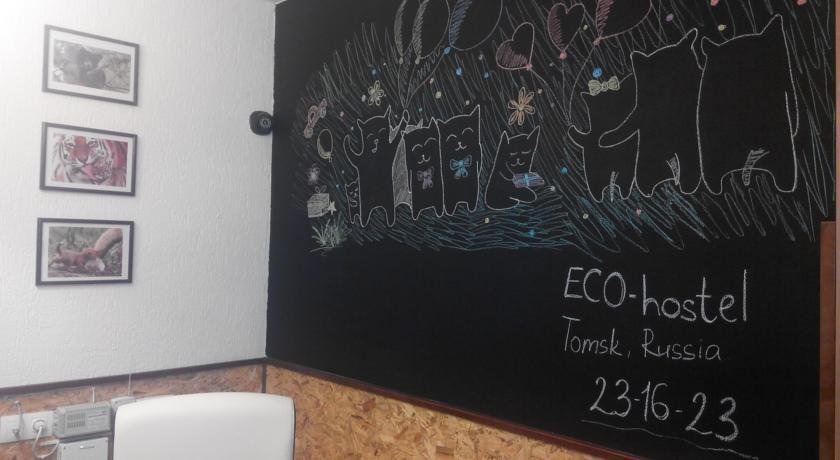 ECO-hostel
Tomsk, Russia
23-16-23